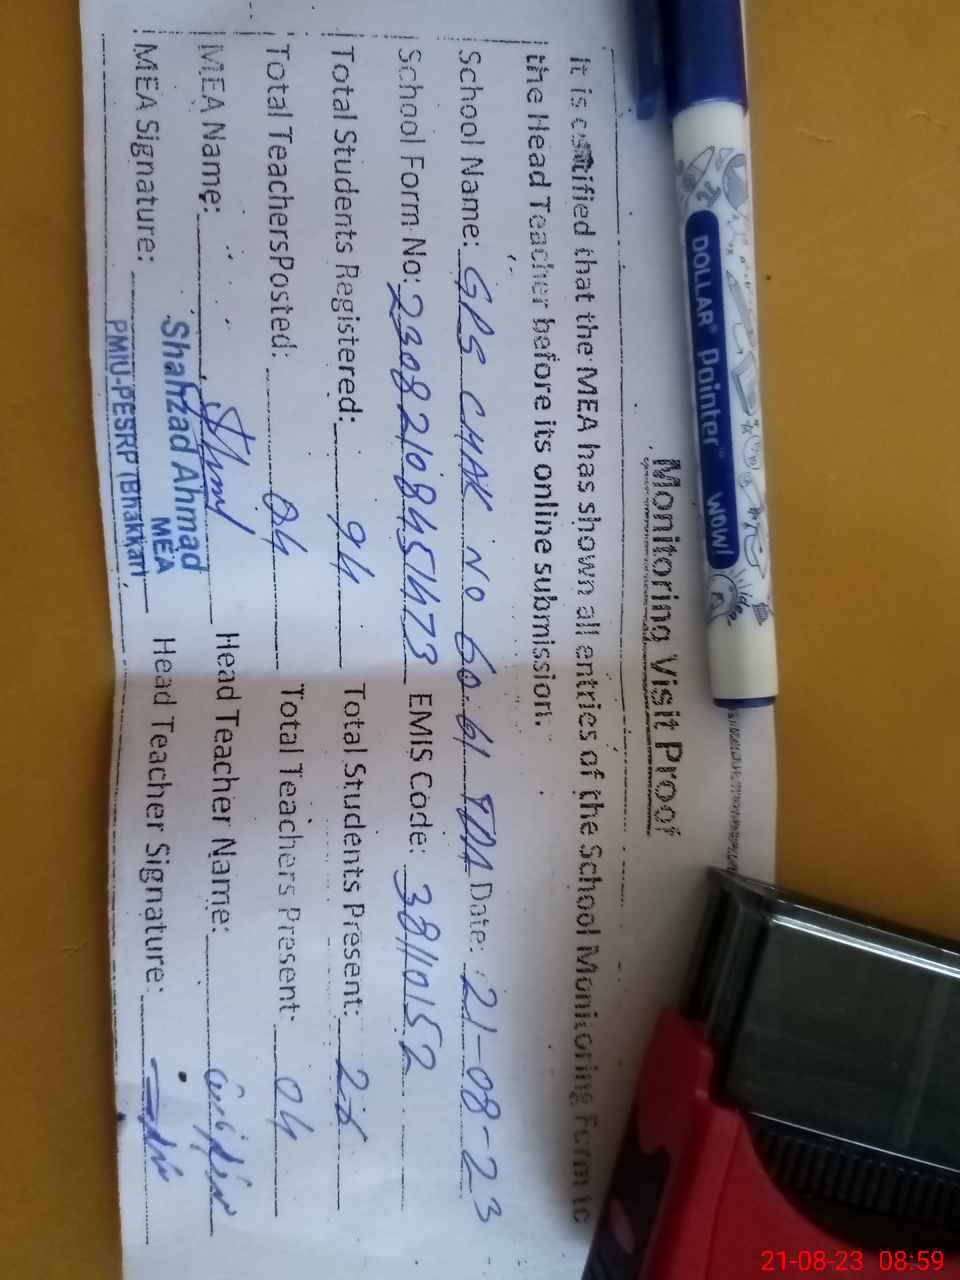 Monitoring Visit Proof
It is certified that the MEA has shown all entries of the School Monitoring Form to
the Head Teacher before its online submission.
School Name: GPS CHAK NO 60 61 TDA Date: 21-08-23
School Form No: 23082108451473 EMIS Code: 38110152
Total Students Registered: 94 Total Students Present:
Total TeachersPosted: 04 Total Teachers Present: 04
MEA Name: Head Teacher Name:
MEA Signature: Head Teacher Signature:
Shahzad Ahmad
MEA
PMIU-PESRP (Bhakkar)
DOLLAR® Pointer™ WOW!
21-08-23 08:59